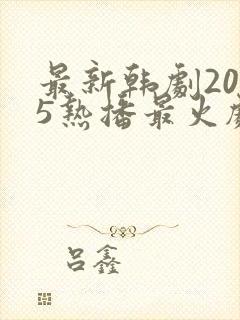 最新韩剧20
5热播最火
吕鑫